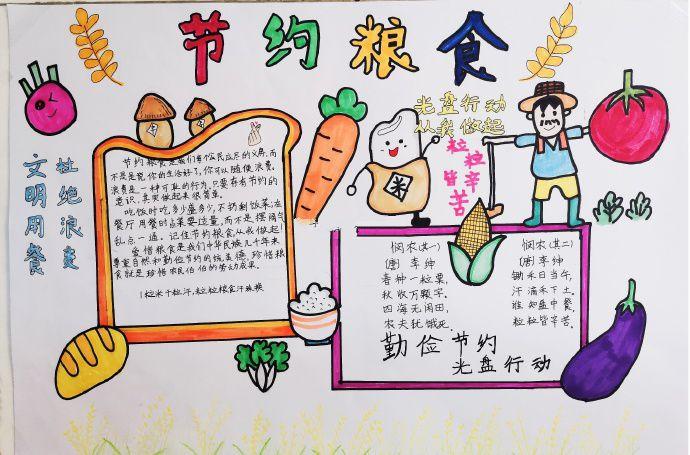 节约粮食
光盘行动
从我做起
粒粒
皆辛
苦
杜绝浪费
文明用餐
米
节约粮食是我们每个公民应尽的义务,而
不是说你的生活好了,你可以随便浪费。
浪费是一种可耻的行为,只要存有节约的
意识,其实做起来很简单。
吃饭时吃多少盛多少,不扔剩饭菜,在
餐厅用餐时点菜要适量,而不是摆阔气
乱点一通。记住节约粮食从我做起!
爱惜粮食是我们中华民族几千年来
尊重自然和勤俭节约的优美德,珍惜粮
食就是珍惜农民伯伯的劳动成果。
1粒米千粒汗,粒粒粮食汗珠换
悯农(其一)
(唐)李绅
春种一粒粟,
秋收万颗子。
四海无闲田,
农夫犹饿死。
悯农(其二)
(唐)李绅
锄禾日当午,
汗滴禾下土。
谁知盘中餐,
粒粒皆辛苦。
勤俭节约
光盘行动